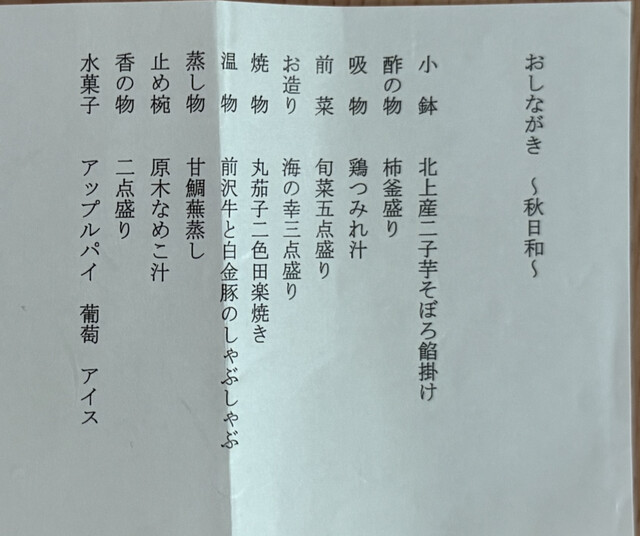 おしながき　～秋日和～
小　鉢　　北上産二子芋そぼろ餡掛け
酢の物　　柿釜盛り
吸　物　　鶏つみれ汁
前　菜　　旬菜五点盛り
お造り　　海の幸三点盛り
焼　物　　丸茄子二色田楽焼き
温　物　　前沢牛と白金豚のしゃぶしゃぶ
蒸し物　　甘鯛蕪蒸し
止め椀　　原木なめこ汁
香の物　　二点盛り
水菓子　　アップルパイ　葡萄　アイス